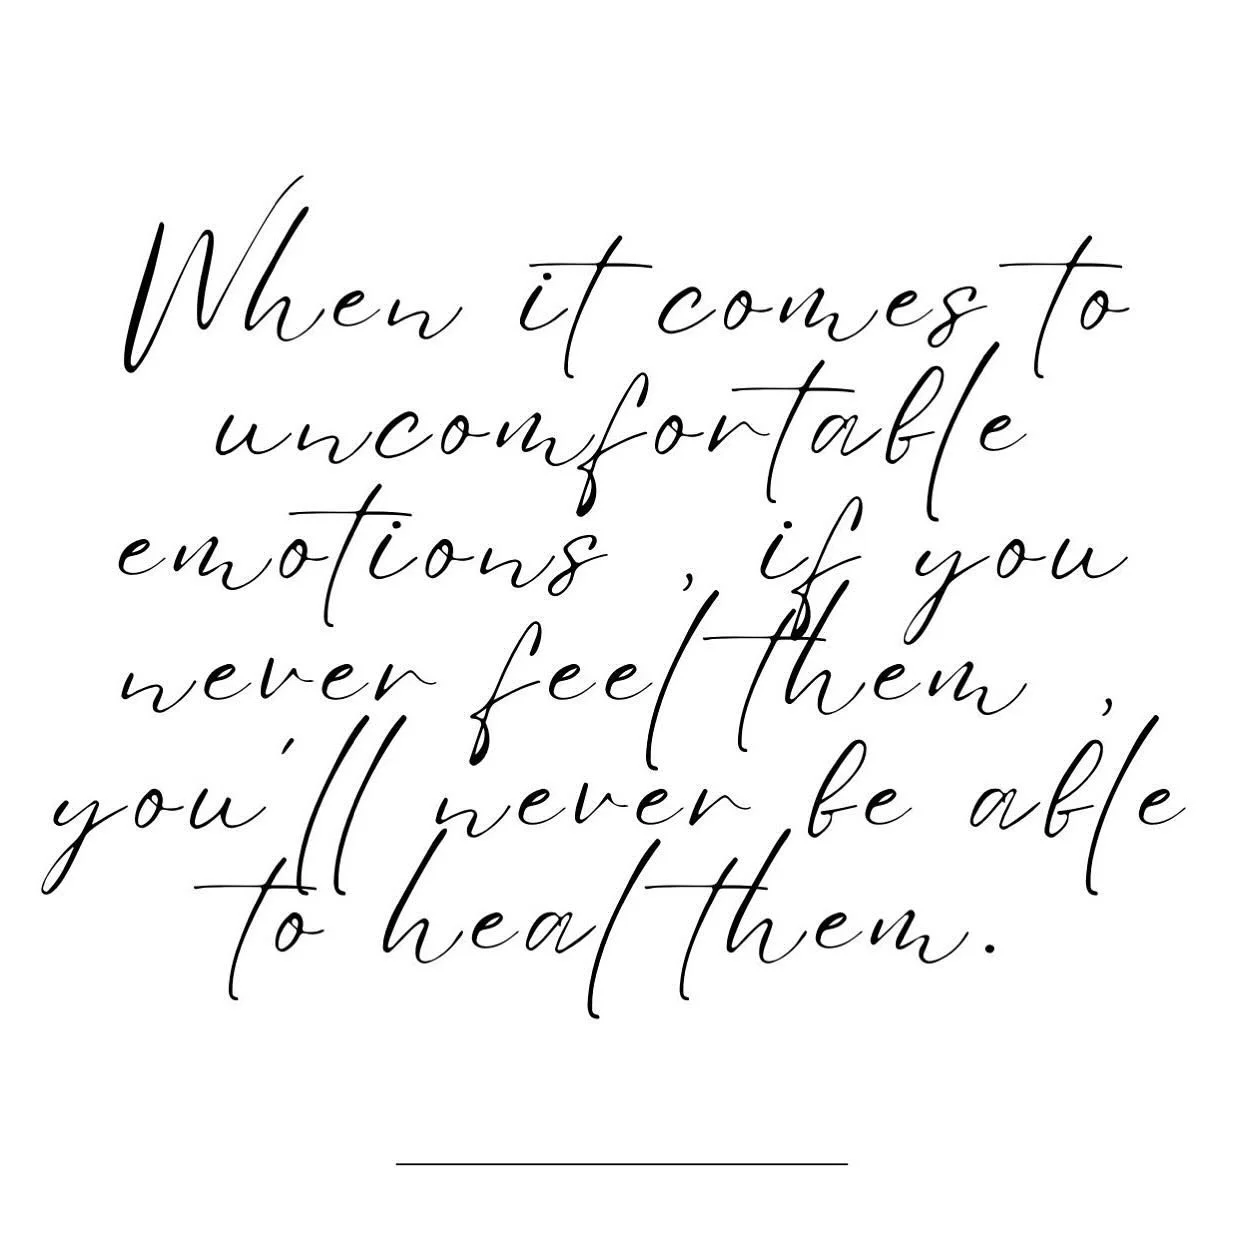 When it comes to
uncomfortable
emotions , if you
never feel them ,
you'll never be able
to heal them.